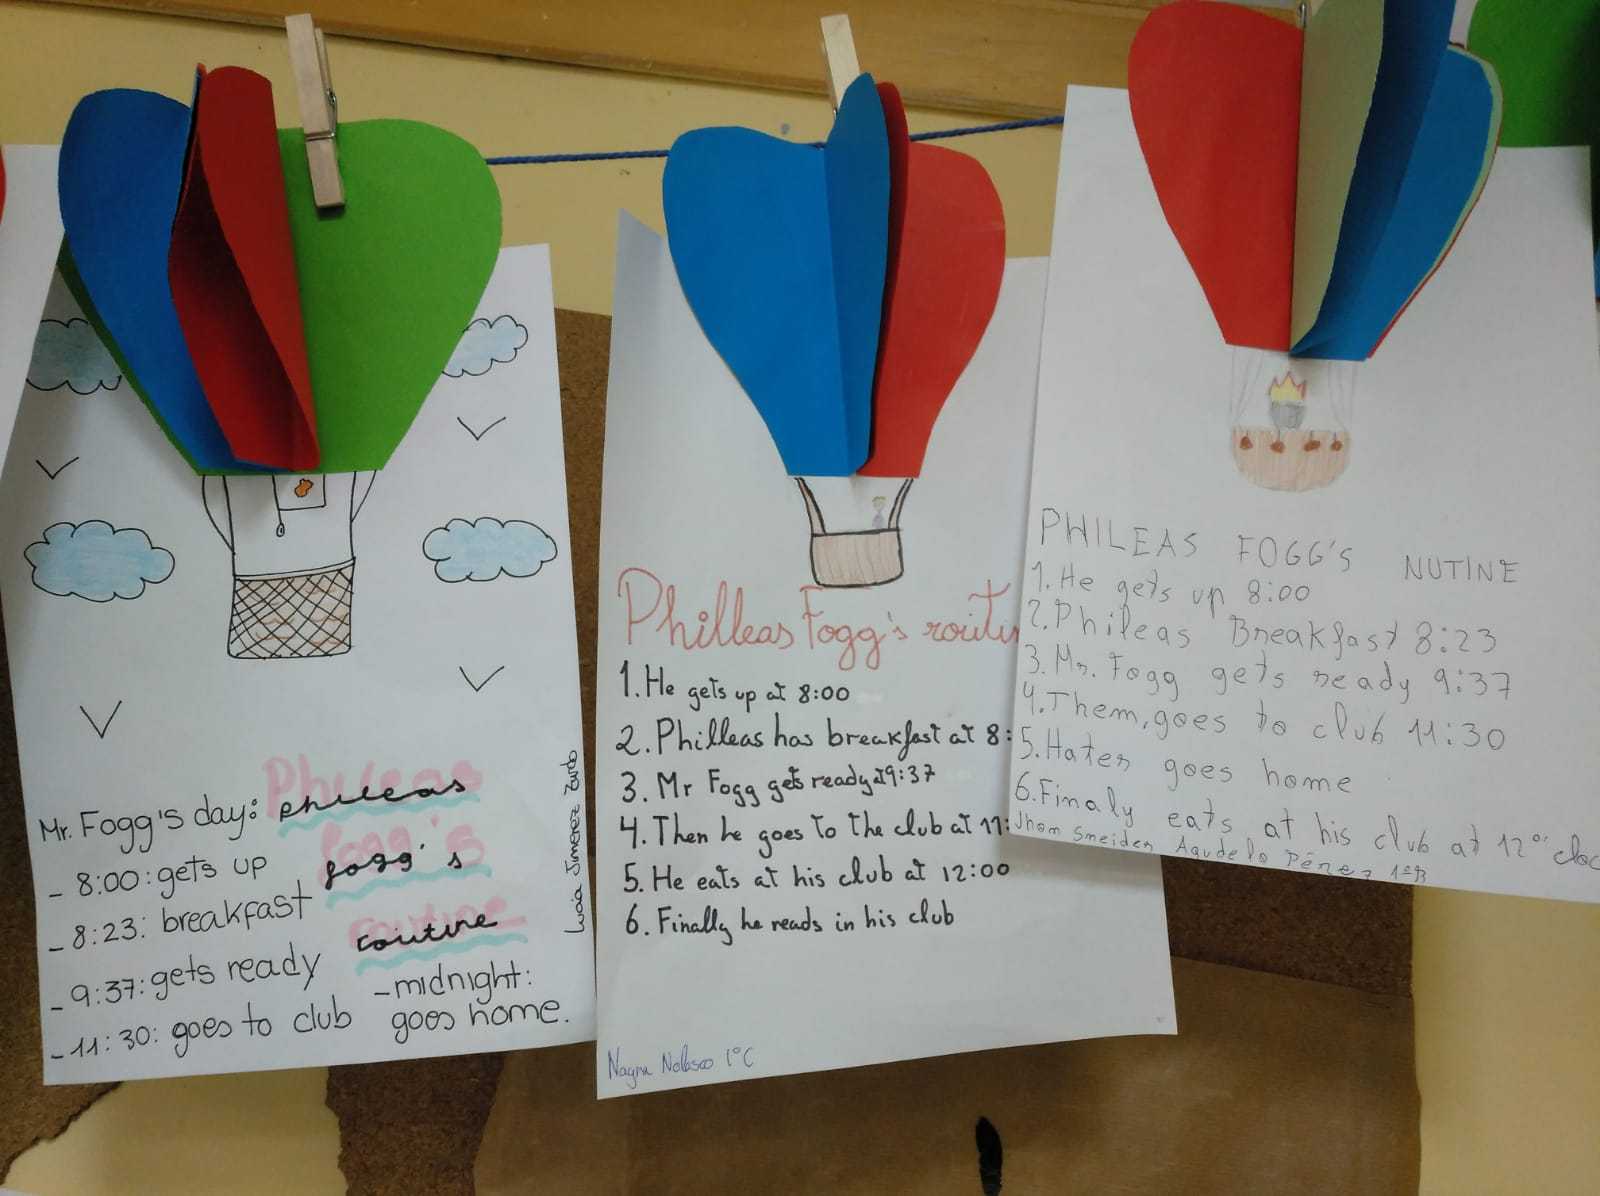 Mr. Fogg's day:
- 8:00: gets up
- 8:23: breakfast
- 9:37: gets ready
- 11:30: goes to club
Phileas
phileas
Fogg's
fogg's
routine
routine
- midnight:
goes home.
Lucía Jiménez
Philleas Fogg's routin
1. He gets up at 8:00
2. Philleas has breakfast at 8:
3. Mr Fogg gets ready at 9:37
4. Then he goes to the club at 11:
5. He eats at his club at 12:00
6. Finally he reads in his club
Nolasco 1ºC
PHILEAS FOGG'S NUTINE
1. He gets up 8:00
2. Phileas Breakfast 8:23
3. Mr. Fogg gets ready 9:37
4. Them, goes to club 11:30
5. Hater goes home
6. Finaly eats at his club at 12 o' cloc
Jhom Smeider Agudelo Pérez 1ºB